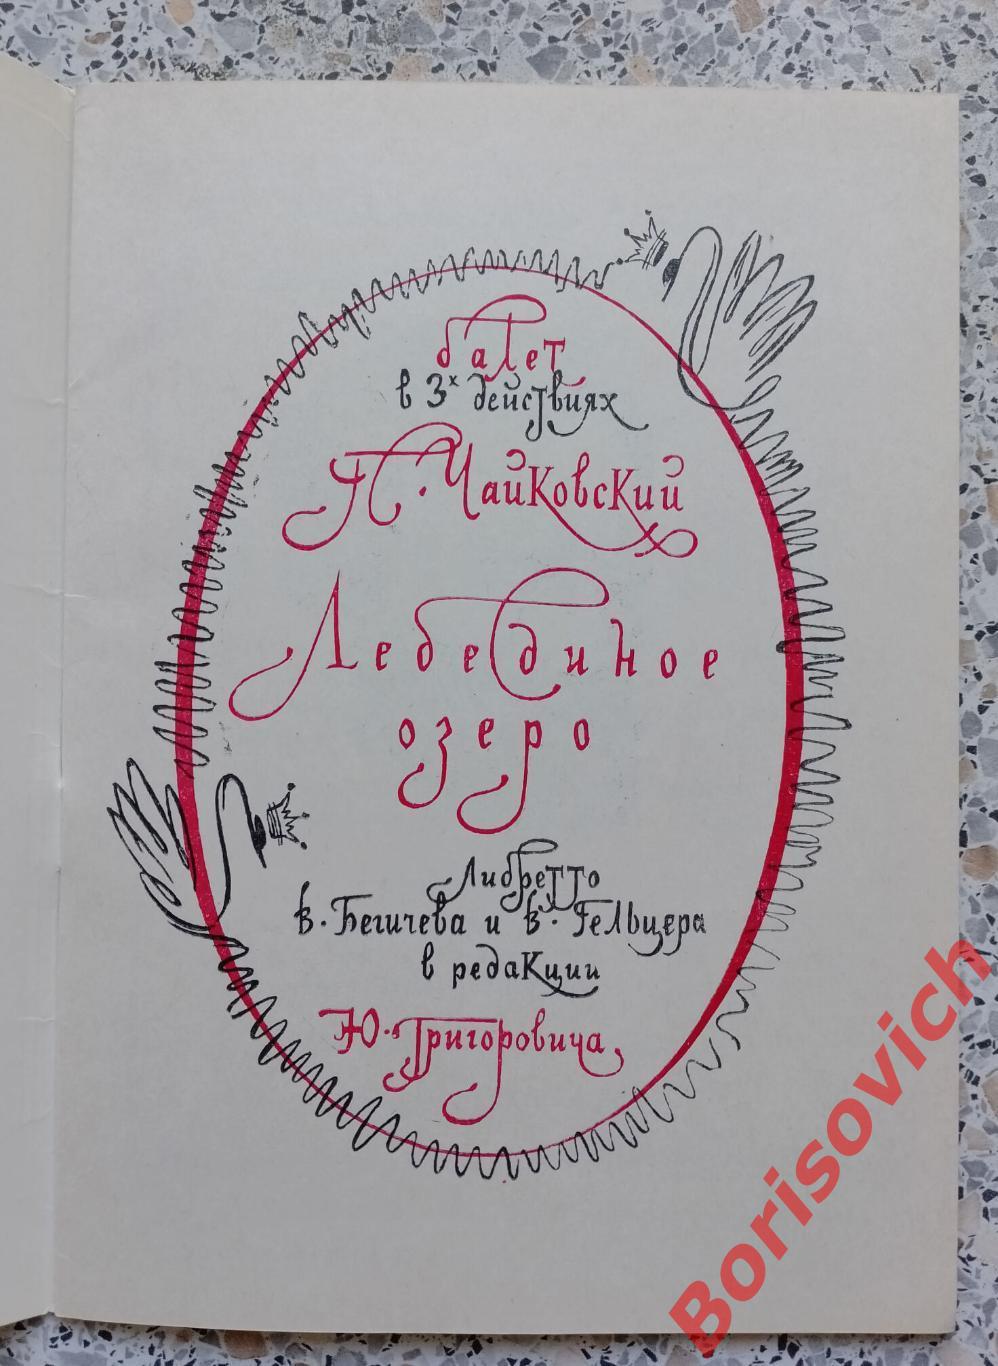 балет
в 3х действиях
П. Чайковский
Лебединое
озеро
Либретто
В. Бегичева и В. Гельцера
в редакции
Ю. Григоровича
Borisovich